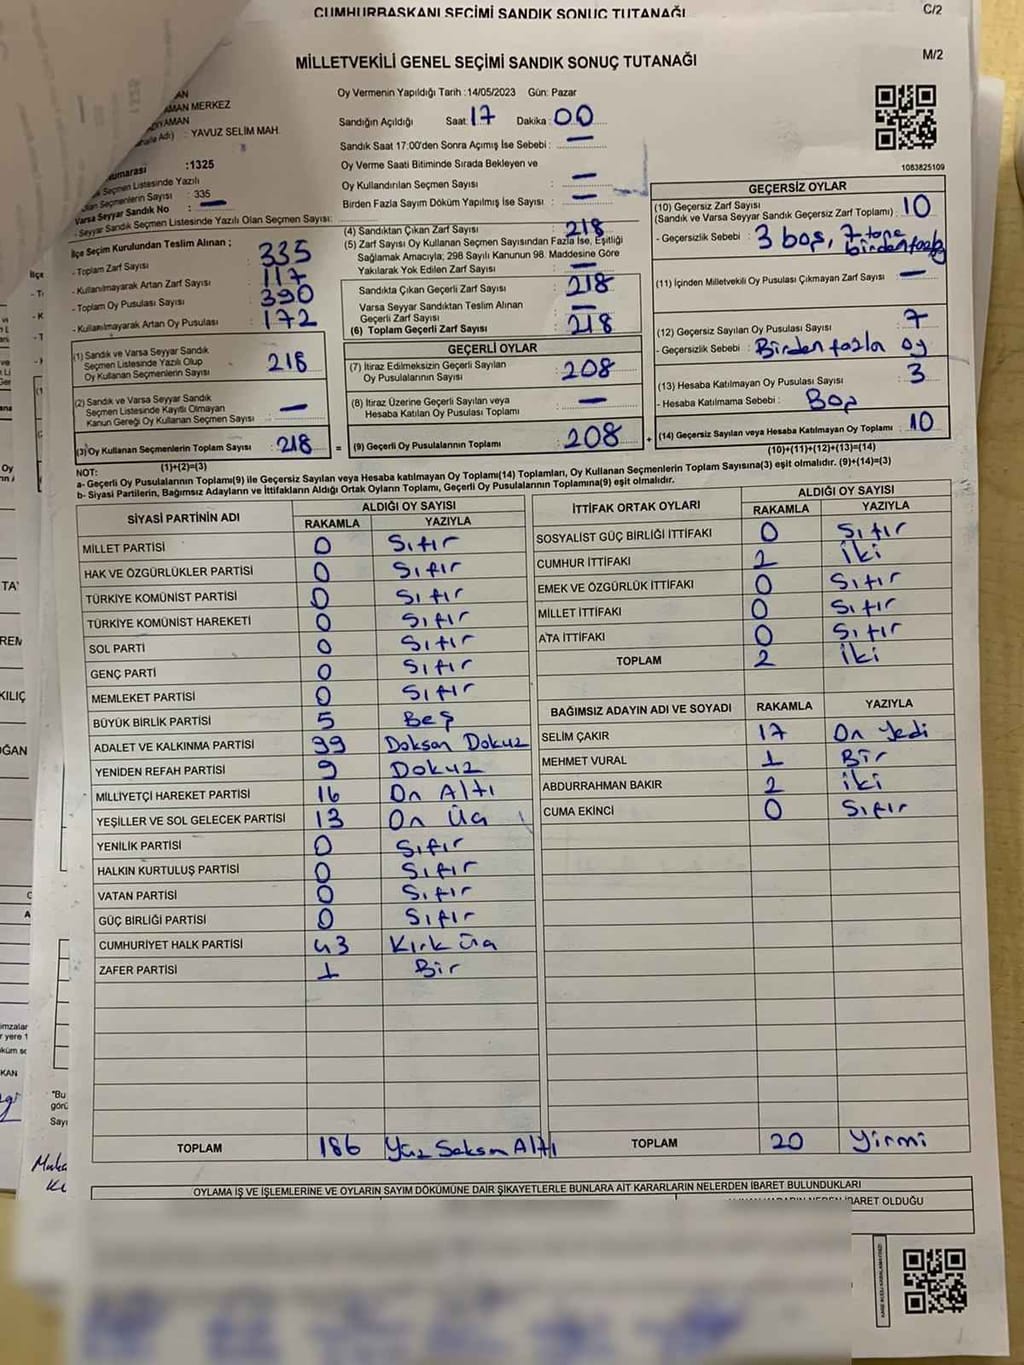 CUMHURBAŞKANI SEÇİMİ SANDIK SONUÇ TUTANAĞI
C/2
M/2
MİLLETVEKİLİ GENEL SEÇİMİ SANDIK SONUÇ TUTANAĞI
AMAN MERKEZ
: YAVUZ SELİM MAH.
:1325
Seçmen Listesinde Yazılı
Seçmenlerin Sayısı : 335
Varsa Seyyar Sandık No : —
- Seyyar Sandık Seçmen Listesinde Yazılı Olan Seçmen Sayısı:
Oy Vermenin Yapıldığı Tarih :14/05/2023 Gün: Pazar
Sandığın Açıldığı Saat: 17 Dakika : 00
Sandık Saat 17:00'den Sonra Açımış İse Sebebi : —
Oy Verme Saati Bitiminde Sırada Bekleyen ve
Oy Kullandırılan Seçmen Sayısı : —
Birden Fazla Sayım Döküm Yapılmış İse Sayısı : —
1083825109
İlçe Seçim Kurulundan Teslim Alınan ;
- Toplam Zarf Sayısı : 335
- Kullanılmayarak Artan Zarf Sayısı : 117
- Toplam Oy Pusulası Sayısı : 390
- Kullanılmayarak Artan Oy Pusulası : 172
(1) Sandık ve Varsa Seyyar Sandık
Seçmen Listesinde Yazılı Olup
Oy Kullanan Seçmenlerin Sayısı : 218
(2) Sandık ve Varsa Seyyar Sandık
Seçmen Listesinde Kayıtlı Olmayan
Kanun Gereği Oy Kullanan Seçmen Sayısı : —
(3) Oy Kullanan Seçmenlerin Toplam Sayısı : 218
(1)+(2)=(3)
(4) Sandıktan Çıkan Zarf Sayısı : 218
(5) Zarf Sayısı Oy Kullanan Seçmen Sayısından Fazla İse, Eşitliği
Sağlamak Amacıyla; 298 Sayılı Kanunun 98. Maddesine Göre
Yakılarak Yok Edilen Zarf Sayısı : —
Sandıkta Çıkan Geçerli Zarf Sayısı : 218
Varsa Seyyar Sandıktan Teslim Alınan
Geçerli Zarf Sayısı : —
(6) Toplam Geçerli Zarf Sayısı : 218
GEÇERLİ OYLAR
(7) İtiraz Edilmeksizin Geçerli Sayılan
Oy Pusulalarının Sayısı : 208
(8) İtiraz Üzerine Geçerli Sayılan veya
Hesaba Katılan Oy Pusulası Toplamı : —
= (9) Geçerli Oy Pusulalarının Toplamı : 208 +
GEÇERSİZ OYLAR
(10) Geçersiz Zarf Sayısı
(Sandık ve Varsa Seyyar Sandık Geçersiz Zarf Toplamı) : 10
- Geçersizlik Sebebi : 3 boş, 7 tane
birden fazla
(11) İçinden Milletvekili Oy Pusulası Çıkmayan Zarf Sayısı : —
(12) Geçersiz Sayılan Oy Pusulası Sayısı : 7
- Geçersizlik Sebebi : Birden fazla oy
(13) Hesaba Katılmayan Oy Pusulası Sayısı : 3
- Hesaba Katılmama Sebebi : Boş
(14) Geçersiz Sayılan veya Hesaba Katılmayan Oy Toplamı : 10
(10)+(11)+(12)+(13)=(14)
NOT:
a- Geçerli Oy Pusulalarının Toplamı(9) ile Geçersiz Sayılan veya Hesaba katılmayan Oy Toplamı(14) Toplamları, Oy Kullanan Seçmenlerin Toplam Sayısına(3) eşit olmalıdır. (9)+(14)=(3)
b- Siyasi Partilerin, Bağımsız Adayların ve İttifakların Aldığı Ortak Oyların Toplamı, Geçerli Oy Pusulalarının Toplamına(9) eşit olmalıdır.
SİYASİ PARTİNİN ADI
ALDIĞI OY SAYISI
RAKAMLA YAZIYLA
MİLLET PARTİSİ 0 Sıfır
HAK VE ÖZGÜRLÜKLER PARTİSİ 0 Sıfır
TÜRKİYE KOMÜNİST PARTİSİ 0 Sıfır
TÜRKİYE KOMÜNİST HAREKETİ 0 Sıfır
SOL PARTİ 0 Sıfır
GENÇ PARTİ 0 Sıfır
MEMLEKET PARTİSİ 0 Sıfır
BÜYÜK BİRLİK PARTİSİ 5 Beş
ADALET VE KALKINMA PARTİSİ 99 Doksan Dokuz
YENİDEN REFAH PARTİSİ 9 Dokuz
MİLLİYETÇİ HAREKET PARTİSİ 16 On Altı
YEŞİLLER VE SOL GELECEK PARTİSİ 13 On Üç
YENİLİK PARTİSİ 0 Sıfır
HALKIN KURTULUŞ PARTİSİ 0 Sıfır
VATAN PARTİSİ 0 Sıfır
GÜÇ BİRLİĞİ PARTİSİ 0 Sıfır
CUMHURİYET HALK PARTİSİ 43 Kırk üç
ZAFER PARTİSİ 1 Bir
TOPLAM 186 Yüz Seksen Altı
İTTİFAK ORTAK OYLARI
ALDIĞI OY SAYISI
RAKAMLA YAZIYLA
SOSYALİST GÜÇ BİRLİĞİ İTTİFAKI 0 Sıfır
CUMHUR İTTİFAKI 2 İki
EMEK VE ÖZGÜRLÜK İTTİFAKI 0 Sıfır
MİLLET İTTİFAKI 0 Sıfır
ATA İTTİFAKI 0 Sıfır
TOPLAM 2 İki
BAĞIMSIZ ADAYIN ADI VE SOYADI RAKAMLA YAZIYLA
SELİM ÇAKIR 17 On Yedi
MEHMET VURAL 1 Bir
ABDURRAHMAN BAKIR 2 iki
CUMA EKİNCİ 0 Sıfır
TOPLAM 20 Yirmi
OYLAMA İŞ VE İŞLEMLERİNE VE OYLARIN SAYIM DÖKÜMÜNE DAİR ŞİKAYETLERLE BUNLARA AİT KARARLARIN NELERDEN İBARET BULUNDUKLARI
İBARET OLDUĞU